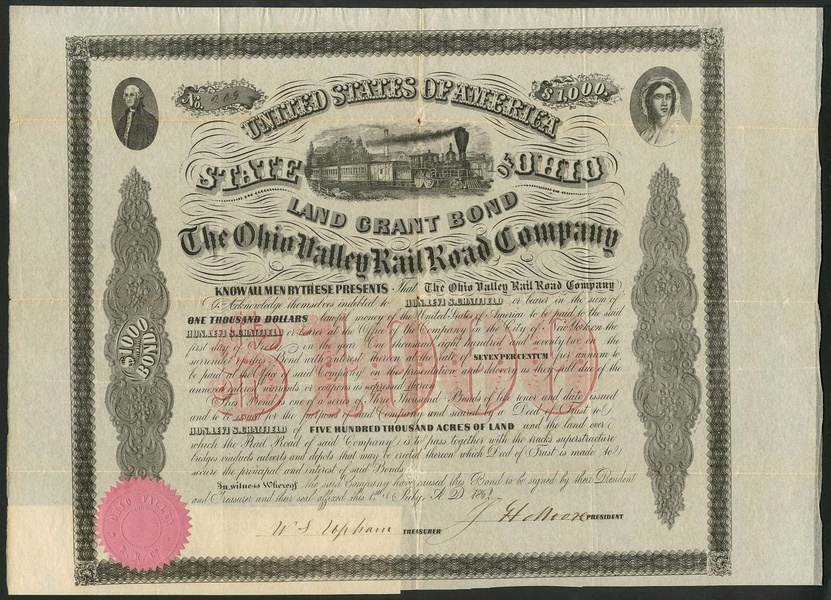 No. 209
$1000.
UNITED STATES OF AMERICA
STATE OF OHIO
LAND GRANT BOND
The Ohio Valley Rail Road Company
KNOW ALL MEN BY THESE PRESENTS That The Ohio Valley Rail Road Company
Acknowledge themselves indebted to HON. LEVI S. CHATFIELD or bearer in the sum of
ONE THOUSAND DOLLARS lawful money of the United States of America to be paid to the said
HON. LEVI S. CHATFIELD or bearer at the Office of the Company in the City of New York on the
first day of in the year One thousand eight hundred and seventy two on the
surrender of this Bond with interest thereon at the rate of SEVEN PER CENTUM per annum to
be paid at the Office of said Company on the presentation and delivery as they fall due of the
annexed interest warrants or coupons as expressed therein
This Bond is one of a series of Three Thousand Bonds of like tenor and date issued
and to be issued for the purposes of said Company and secured by a Deed of Trust to
HON. LEVI S. CHATFIELD of FIVE HUNDRED THOUSAND ACRES OF LAND and the land over
which the Rail Road of said Company is to pass together with the tracks superstructure
bridges viaducts culverts and depots that may be erected thereon which Deed of Trust is made to
secure the principal and interest of said Bonds
In witness Whereof The said Company have caused this Bond to be signed by their President
and Treasurer and their seal affixed this 1st July A.D.
$1000
$1000 BOND
OHIO VALLEY R.R. Co
W S Upham TREASURER
J H Moore PRESIDENT